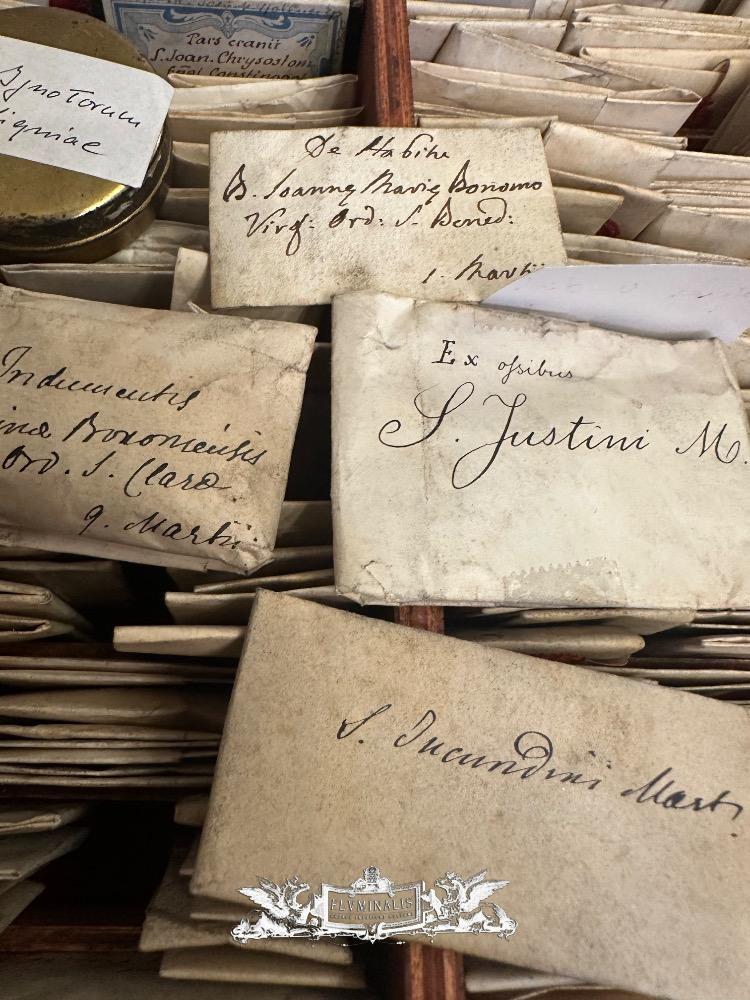 Pars cranii
S. Joan. Chrysostom
Ignotorum
De Habitu
B. Joannę Marię Bonomo
Virg: Ord: S. Bened:
1. Martii
Indumentis
Bononiensis
Ord. S. Claræ
9. Martii
Ex ossibus
S. Justini M.
S. Jucundini Mart.
FLVMINALIS